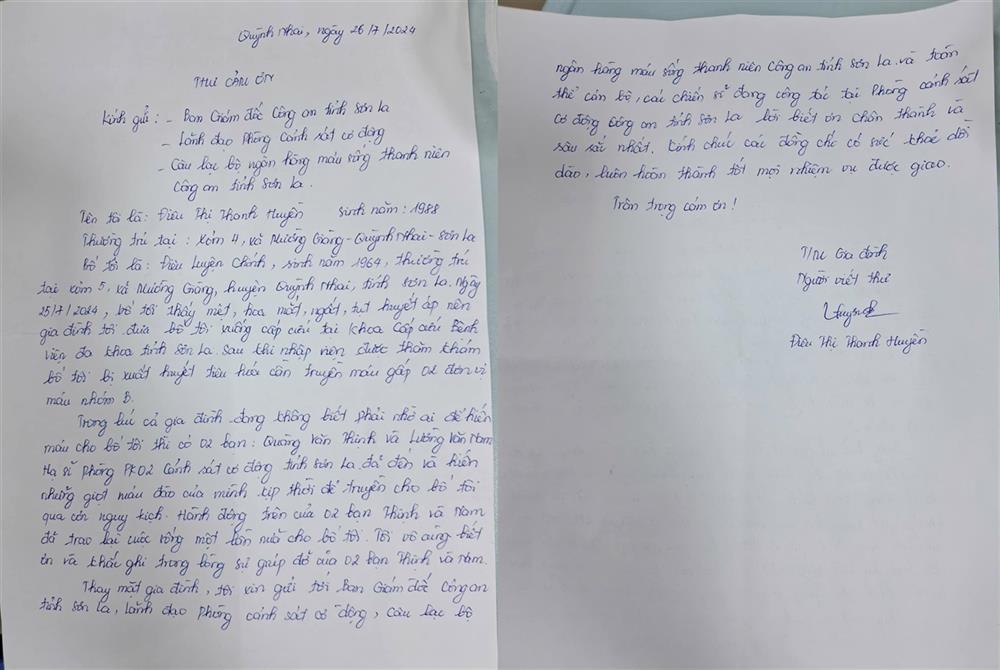 Quỳnh Nhai, ngày 26/7/2024
THƯ CẢM ƠN
Kính gửi: - Ban Giám đốc Công an tỉnh Sơn La
- Lãnh đạo Phòng Cảnh sát cơ động
- Câu lạc bộ ngân hàng máu sống thanh niên
Công an tỉnh Sơn La.
Tên tôi là: Điêu Thị Thanh Huyền sinh năm: 1988
Thường trú tại: Xóm 4, xã Mường Giàng - Quỳnh Nhai - Sơn La
Bố tôi là: Điêu Luyện Chính, sinh năm 1964, thường trú
tại xóm 5, xã Mường Giàng, huyện Quỳnh Nhai, tỉnh Sơn La. Ngày
25/7/2024, bố tôi thấy mệt, hoa mắt, ngất, tụt huyết áp nên
gia đình tôi đưa bố tôi xuống cấp cứu tại khoa Cấp cứu Bệnh
viện đa khoa tỉnh Sơn La. Sau khi nhập viện được thăm khám
bố tôi bị xuất huyết tiêu hoá cần truyền máu gấp 02 đơn vị
máu nhóm B.
Trong lúc cả gia đình đang không biết phải nhờ ai để hiến
máu cho bố tôi thì có 02 bạn: Quàng Văn Thinh và Lường Văn Nam
Hạ sĩ phòng PK02 Cảnh sát cơ động tỉnh Sơn La đã đến và hiến
những giọt máu đào của mình kịp thời để truyền cho bố tôi
qua cơn nguy kịch. Hành động trên của 02 bạn Thinh và Nam
đã trao lại cuộc sống một lần nữa cho bố tôi. Tôi vô cùng biết
ơn và khắc ghi trong lòng sự giúp đỡ của 02 bạn Thinh và Nam.
Thay mặt gia đình, tôi xin gửi tới Ban Giám đốc Công an
tỉnh Sơn La, Lãnh đạo Phòng Cảnh sát cơ động, Câu lạc bộ
ngân hàng máu sống thanh niên Công an tỉnh Sơn La và toàn
thể cán bộ, các chiến sĩ đang công tác tại Phòng cảnh sát
cơ động Công an tỉnh Sơn La lời biết ơn chân thành và
sâu sắc nhất. Kính chúc các đồng chí có sức khoẻ dồi
dào, luôn hoàn thành tốt mọi nhiệm vụ được giao.
Trân trọng cảm ơn!
T/M Gia đình
Người viết thư
Huyền
Điêu Thị Thanh Huyền